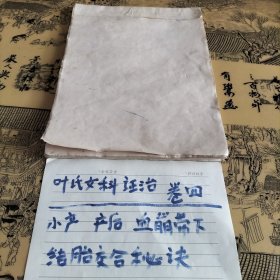 叶氏女科证治 卷四
小产 产后 血崩带下
结胎交合秘诀